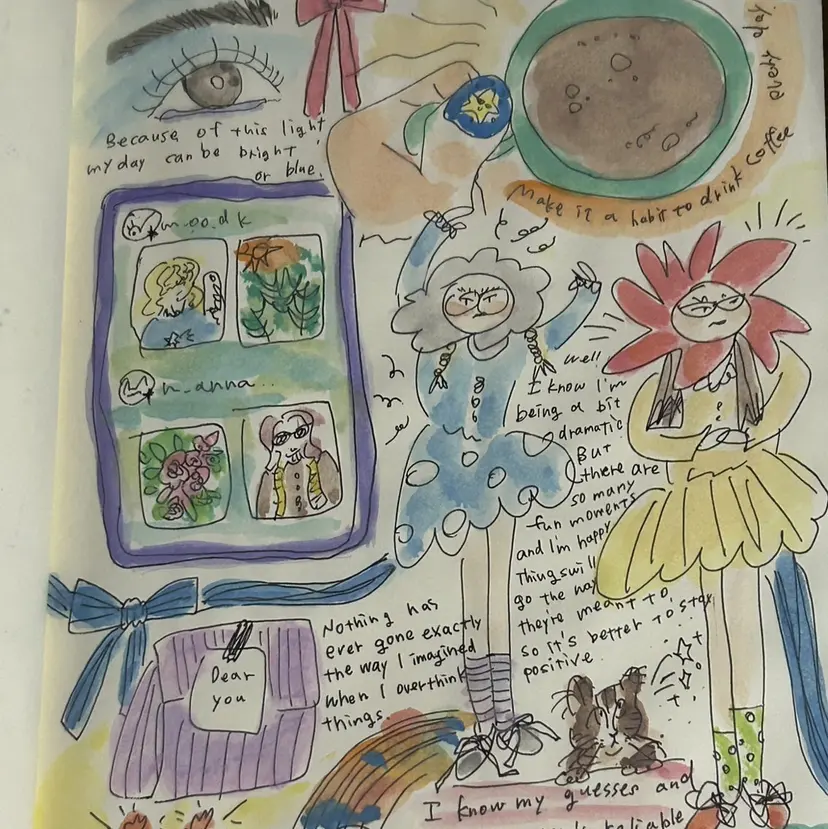 Because of this light
my day can be bright
or blue.
every day
Make it a habit to drink coffee
m.oo.d k
n_anna..
well
I know I'm
being a bit
dramatic
But
there are
so many
fun moments
and I'm happy
Things will
go the way
they're meant to,
so it's better to stay
positive.
Nothing has
ever gone exactly
the way I imagined
when I overthink
things.
Dear
you
I know my guesses and
reliable